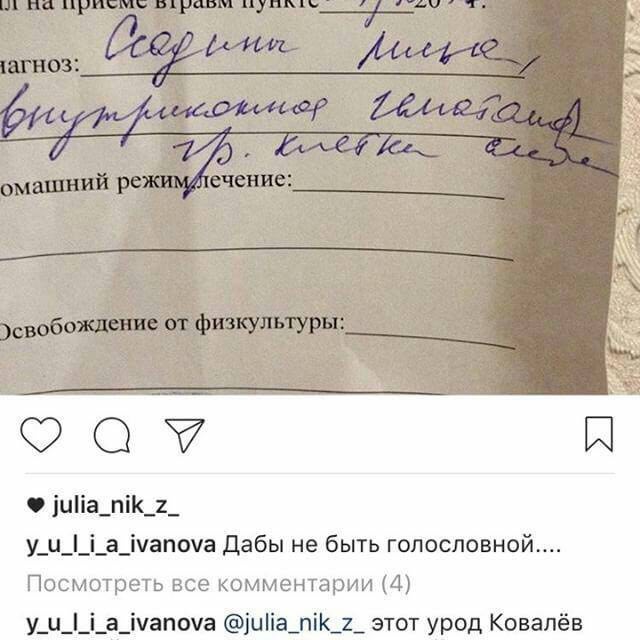 л на приёме в травм пункте
20
иагноз: Ссадины лица,
внутрикожная гематома
гр. клетки слева
омашний режим, лечение:
Освобождение от физкультуры:
julia_nik_z_
y_u_l_i_a_ivanova Дабы не быть голословной....
Посмотреть все комментарии (4)
y_u_l_i_a_ivanova @julia_nik_z_ этот урод Ковалёв